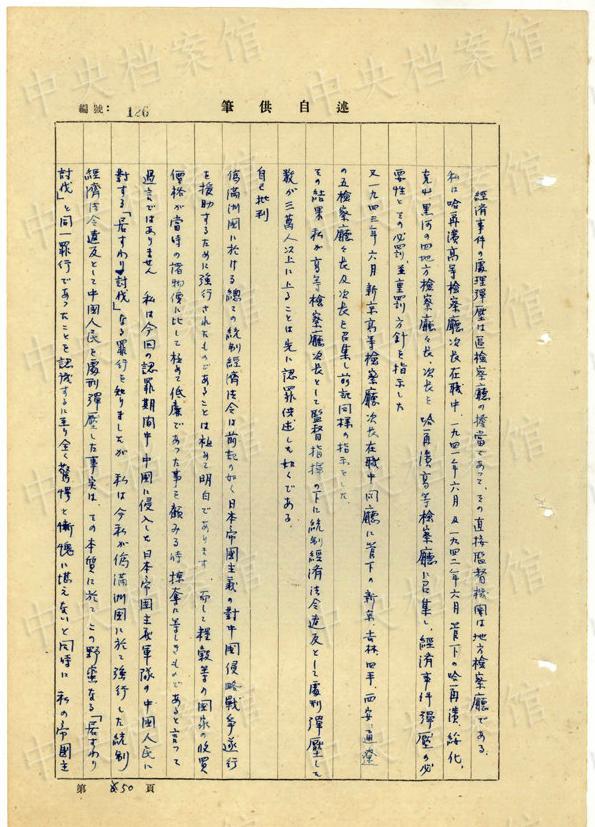 述自供筆
編號：126
経済事件の處理彈壓は區検察廳の擔當であって、その直接監督機関は地方検察廳である、
私は哈爾濱高等検察廳次長在職中、一九四一年六月及一九四二年六月管下の哈爾濱、綏化、
黒河の四地方検察廳々長、次長を哈爾濱高等検察廳に召集し、経済事件彈壓の必
要性とその必罰、並重罰方針を指示した
又一九四三年六月新京高等検察廳次長在職中同廳に管下の新京、吉林、四平、西安、通遼
の五検察廳々長及次長を召集し前記同様の指示をした、
その結果私が高等検察廳次長として監督指揮の下に統制経済法令違反として處刑彈壓して
数が三萬人以上に上ることは先に認罪供述した如くである、
自己批判
偽満洲国に於ける總ての統制経済法令は前記の如く日本帝國主義の對中國侵略戰爭遂行
を援助するために強行されたものであることは極めて明白であります、而して糧穀等の國家の收買
價格が當時の諸物價に比して極めて低廉であった事を顧みる時掠奪に等しきものであると言って
過言ではありません 私は今回の認罪期間中中國に侵入した日本帝國主義軍隊の中國人民に
對する「居すわり討伐」なる罪行を知りましたが 私は今私が偽満洲國に於て強行した統制
経済法令違反として中國人民を處刑彈壓した事実は、その本質に於て この野蛮なる「居すわり
討伐」と同一罪行であったことを認識するに至り全く驚愕と慚愧に堪えないと同時に 私の帝國主
第 50 頁
中央档案馆